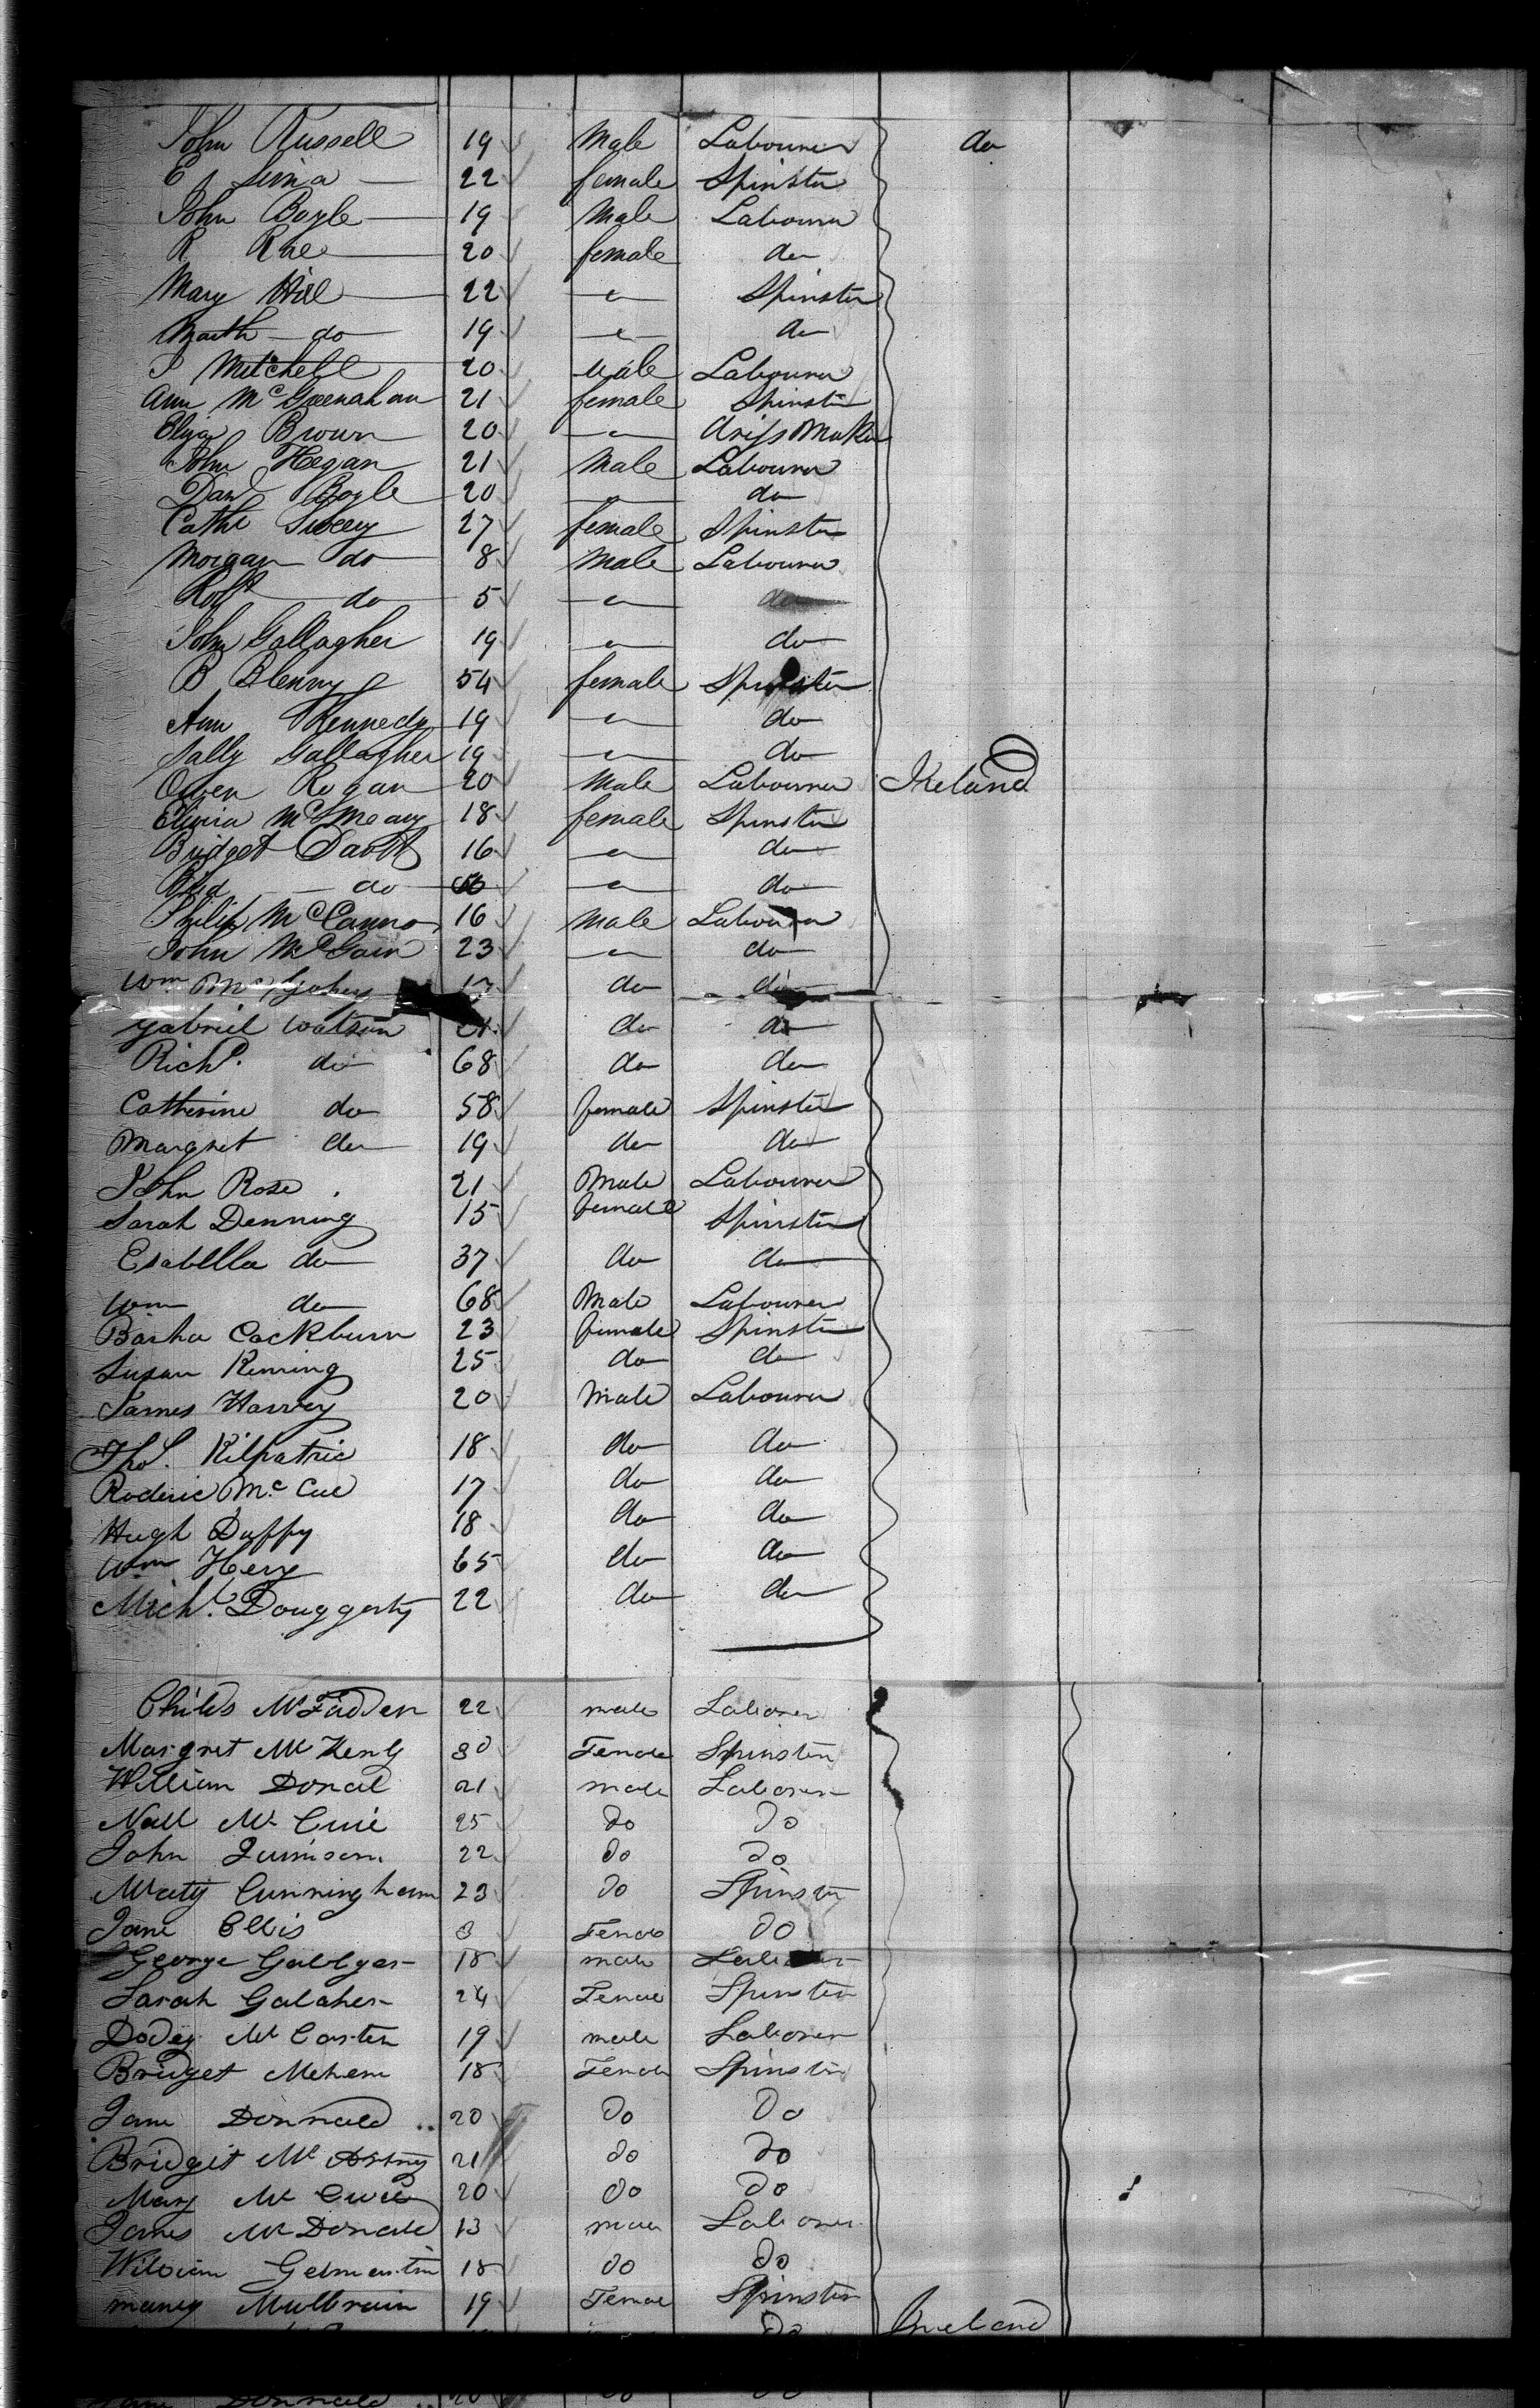 John Russell 19 Male Labourer do
E Sima 22 female Spinster
John Boyle 19 Male Labourer
R Rae 20 female do
Mary Hill 22 Spinster
Marth do 19 do
Mitchell 20 Male Labourer
Ann McGreenahan 21 female Spinster
Eliza Brown 20 dress Maker
John Hegan 21 Male Labourer
Danl Boyle 20 do
Cathe 27 female Spinster
Morgan do 8 Male Labourer
Robt do 5 do
John Gallagher 19 do
B Blenny 54 female Spinster
Ann Kennedy 19 do
Sally Gallagher 19 do
Owen Rogan 20 Male Labourer Ireland
18 female Spinster
Bridget 16 do
do do
Philip McCann 16 Male Labourer
John McGain 23 do
Wm 17 do do
Gabriel Watson 21 do do
Richd. do 68 do do
Catherine do 58 female Spinster
Margret do 19 do do
John Rose 21 Male Labourer
Sarah Denning 15 female Spinster
Esabella do 37 do do
Wm do 68 Male Labourer
Cockburn 23 female Spinster
Susan 25 do do
James Harvey 20 Male Labourer
Thos. Kilpatric 18 do do
Roderic Mc. Cue 17 do do
Hugh Duffy 18 do do
Wm Hery 65 do do
Michl. Douggerty 22 do do
Childs McFadden 22 male Laborer
Margret Mc 30 Female Spinster
William Donal 21 male Laborer
Nall Mc 25 do do
John Jamison 22 do do
Cunningham 23 do Spinster
Jane Ellis Female do
George 18 male Laborer
Sarah Galaher 24 Female Spinster
Dodey McCarten 19 male Laborer
Bridget Mehem 18 Female Spinster
Jane Donnald 20 do do
Bridget Mc 21 do do
Mary Mc 20 do do
James McDonald 13 male Laborer
William 18 do do
Mulbrain 19 Female Spinster
do Ireland